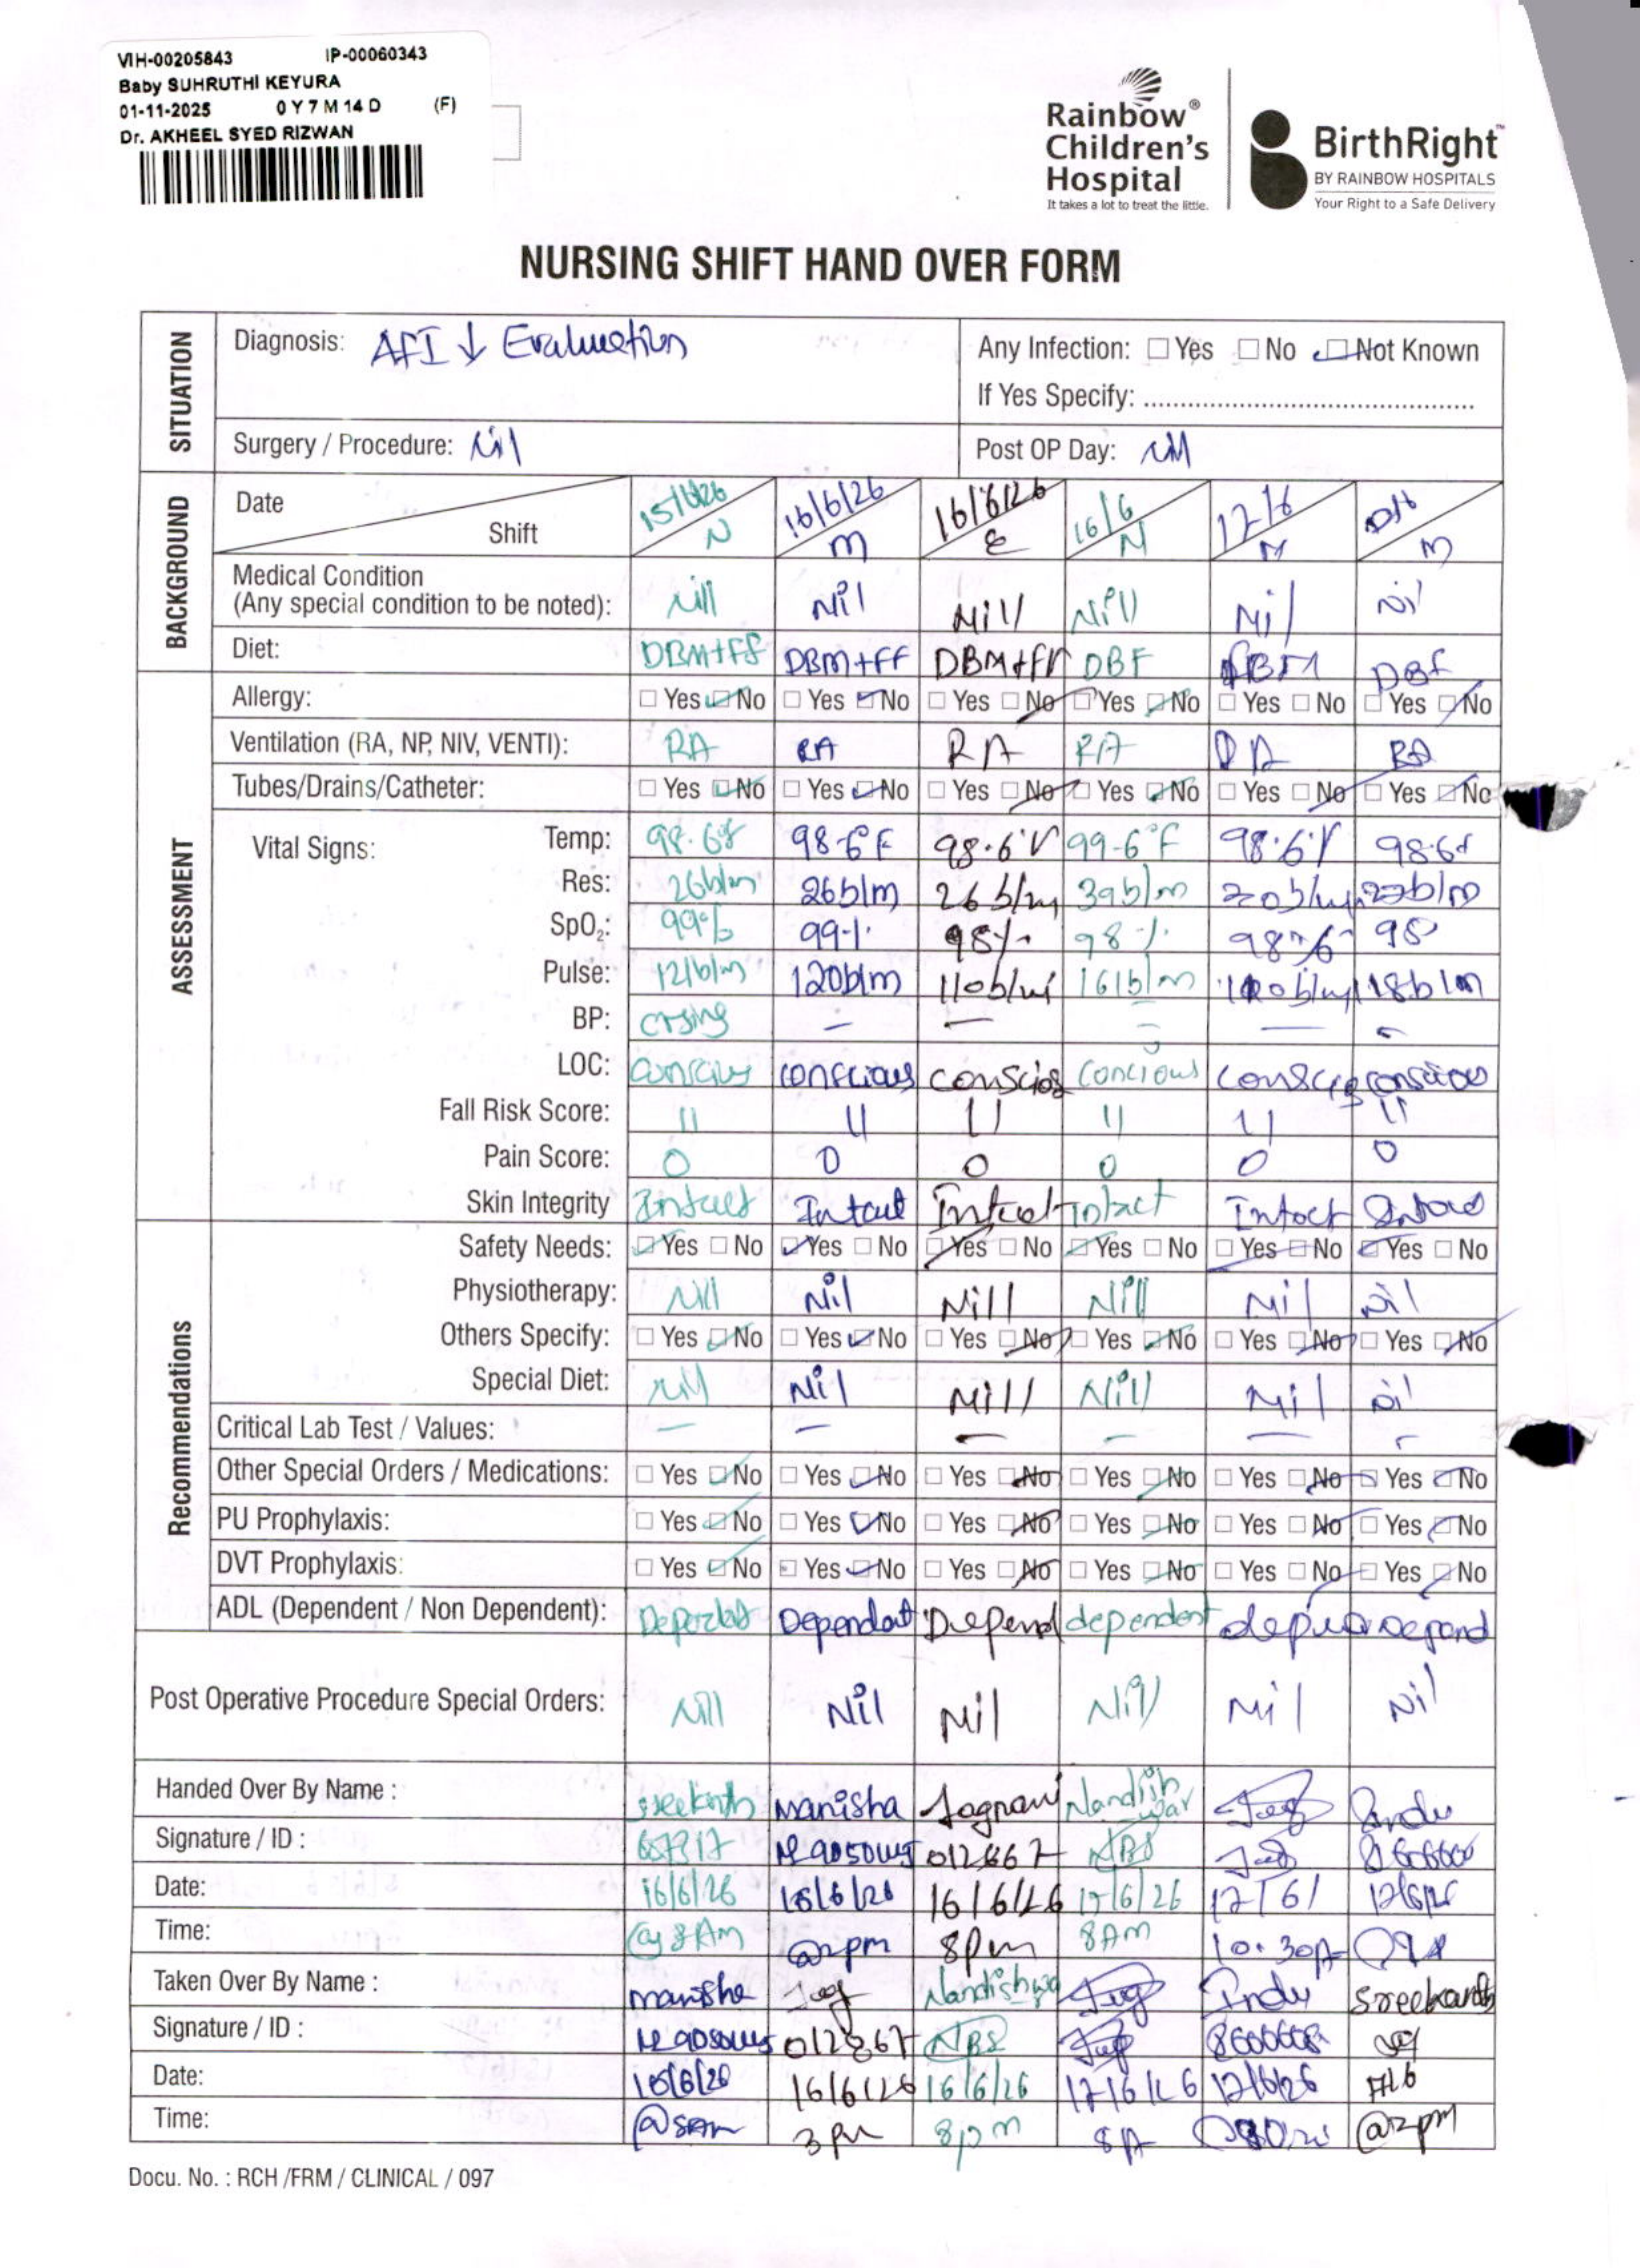 VIH-00205843 IP-00060343
Baby SUHRUTHI KEYURA
01-11-2025 0 Y 7 M 14 D (F)
Dr. AKHEEL SYED RIZWAN
Rainbow® Children's Hospital
It takes a lot to treat the little.
BirthRight™
BY RAINBOW HOSPITALS
Your Right to a Safe Delivery
NURSING SHIFT HAND OVER FORM
SITUATION
Diagnosis: AFI ↓ Evaluation
Any Infection: ☐ Yes ☐ No ☑ Not Known
If Yes Specify: ..........
Surgery / Procedure: Nil
Post OP Day: Nil
BACKGROUND
Date 15/6/26 16/6/26 16/6/26 16/6 17/6
Shift N M E N M M
Medical Condition
(Any special condition to be noted): Nill Nil Nill Nill Nil Nil
Diet: DBM+FF DBM+FF DBM+FF DBF DBF
ASSESSMENT
Allergy: ☐ Yes ☑ No ☐ Yes ☑ No ☐ Yes ☑ No ☐ Yes ☑ No ☐ Yes ☐ No ☐ Yes ☑ No
Ventilation (RA, NP, NIV, VENTI): RA RA RA RA RA RA
Tubes/Drains/Catheter: ☐ Yes ☑ No ☐ Yes ☑ No ☐ Yes ☑ No ☐ Yes ☑ No ☐ Yes ☑ No ☐ Yes ☑ No
Vital Signs: Temp: 98.6f 98.6°F 98.6°F 99.6°F 98.6°F 98.6f
Res: 26b/m 26b/m 26 b/m 39b/m
SpO₂: 99% 99% 98% 98% 98% 98
Pulse: 121b/m 120b/m 110b/m 161b/m 118b/m
BP: crying – – – – –
LOC: conscious conscious Concious conscious
Fall Risk Score: 11 11 11 11 11 11
Pain Score: 0 0 0 0 0 0
Skin Integrity Intact Intact Intact Intact Intact Intact
Recommendations
Safety Needs: ☑ Yes ☐ No ☑ Yes ☐ No ☑ Yes ☐ No ☑ Yes ☐ No ☐ Yes ☐ No ☑ Yes ☐ No
Physiotherapy: Nill Nil Nill Nill Nil Nil
Others Specify: ☐ Yes ☑ No ☐ Yes ☑ No ☐ Yes ☑ No ☐ Yes ☑ No ☐ Yes ☑ No ☐ Yes ☑ No
Special Diet: Nil Nil Nill Nill Nil Nil
Critical Lab Test / Values: – – – – – –
Other Special Orders / Medications: ☐ Yes ☑ No ☐ Yes ☑ No ☐ Yes ☑ No ☐ Yes ☑ No ☐ Yes ☑ No ☐ Yes ☑ No
PU Prophylaxis: ☐ Yes ☑ No ☐ Yes ☑ No ☐ Yes ☑ No ☐ Yes ☑ No ☐ Yes ☑ No ☐ Yes ☑ No
DVT Prophylaxis: ☐ Yes ☑ No ☐ Yes ☑ No ☐ Yes ☑ No ☐ Yes ☑ No ☐ Yes ☑ No ☐ Yes ☑ No
ADL (Dependent / Non Dependent): Dependent Depend dependent Depend
Post Operative Procedure Special Orders: Nill Nil Nil Nill Nil Nil
Handed Over By Name : Sreekanth Manisha Nandish war Indu
Signature / ID : NBS
Date: 16/6/26 16/6/26 16/6/26 17/6/26 17/6/ 17/6/26
Time: @ 8 Am @2pm 8pm 8AM
Taken Over By Name : Manisha Nandishwa Indu Sreekanth
Signature / ID : 012867 NBS
Date: 16/6/26 16/6/26 16/6/26 17/6/26 17/6/26
Time: @8Am 3 pm 8pm 8A @2pm
Docu. No. : RCH /FRM / CLINICAL / 097